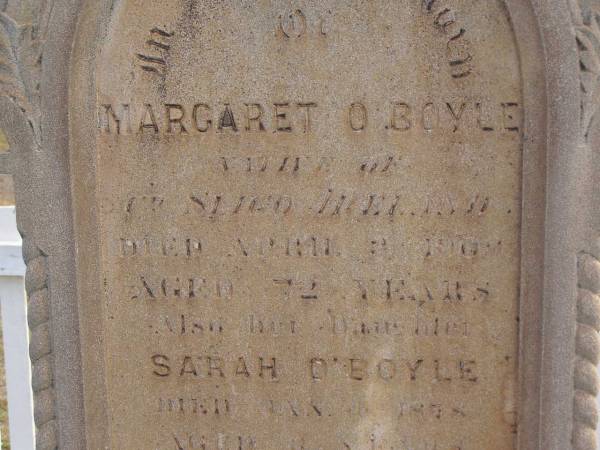 In
Of
MARGARET O'BOYLE
NATIVE OF
SLIGO IRELAND.
DIED APRIL
AGED 72 YEARS
Also Her Daughter
SARAH O'BOYLE
DIED JAN. 1878
AGED